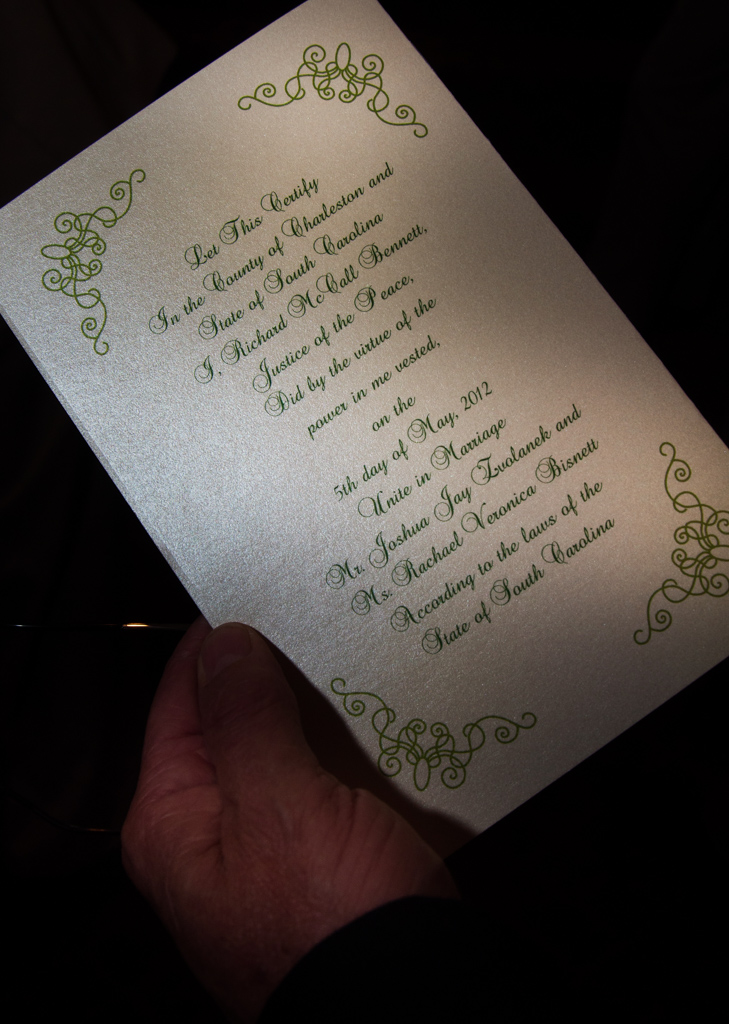 Let This Certify
In the County of Charleston and
State of South Carolina
I, Richard McCall Bennett,
Justice of the Peace,
Did by the virtue of the
power in me vested,
on the
5th day of May, 2012
Unite in Marriage
Mr. Joshua Jay Zvolanek and
Ms. Rachael Veronica Bisnett
According to the laws of the
State of South Carolina